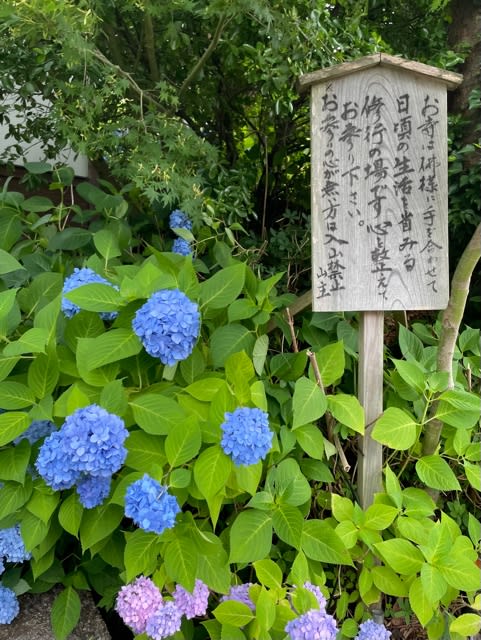 お寺は佛様に手を合かせて
日頃の生活を省みる
修行の場です心を整えて
お参り下さい。
お参りの心が無い方は入山禁止
山主